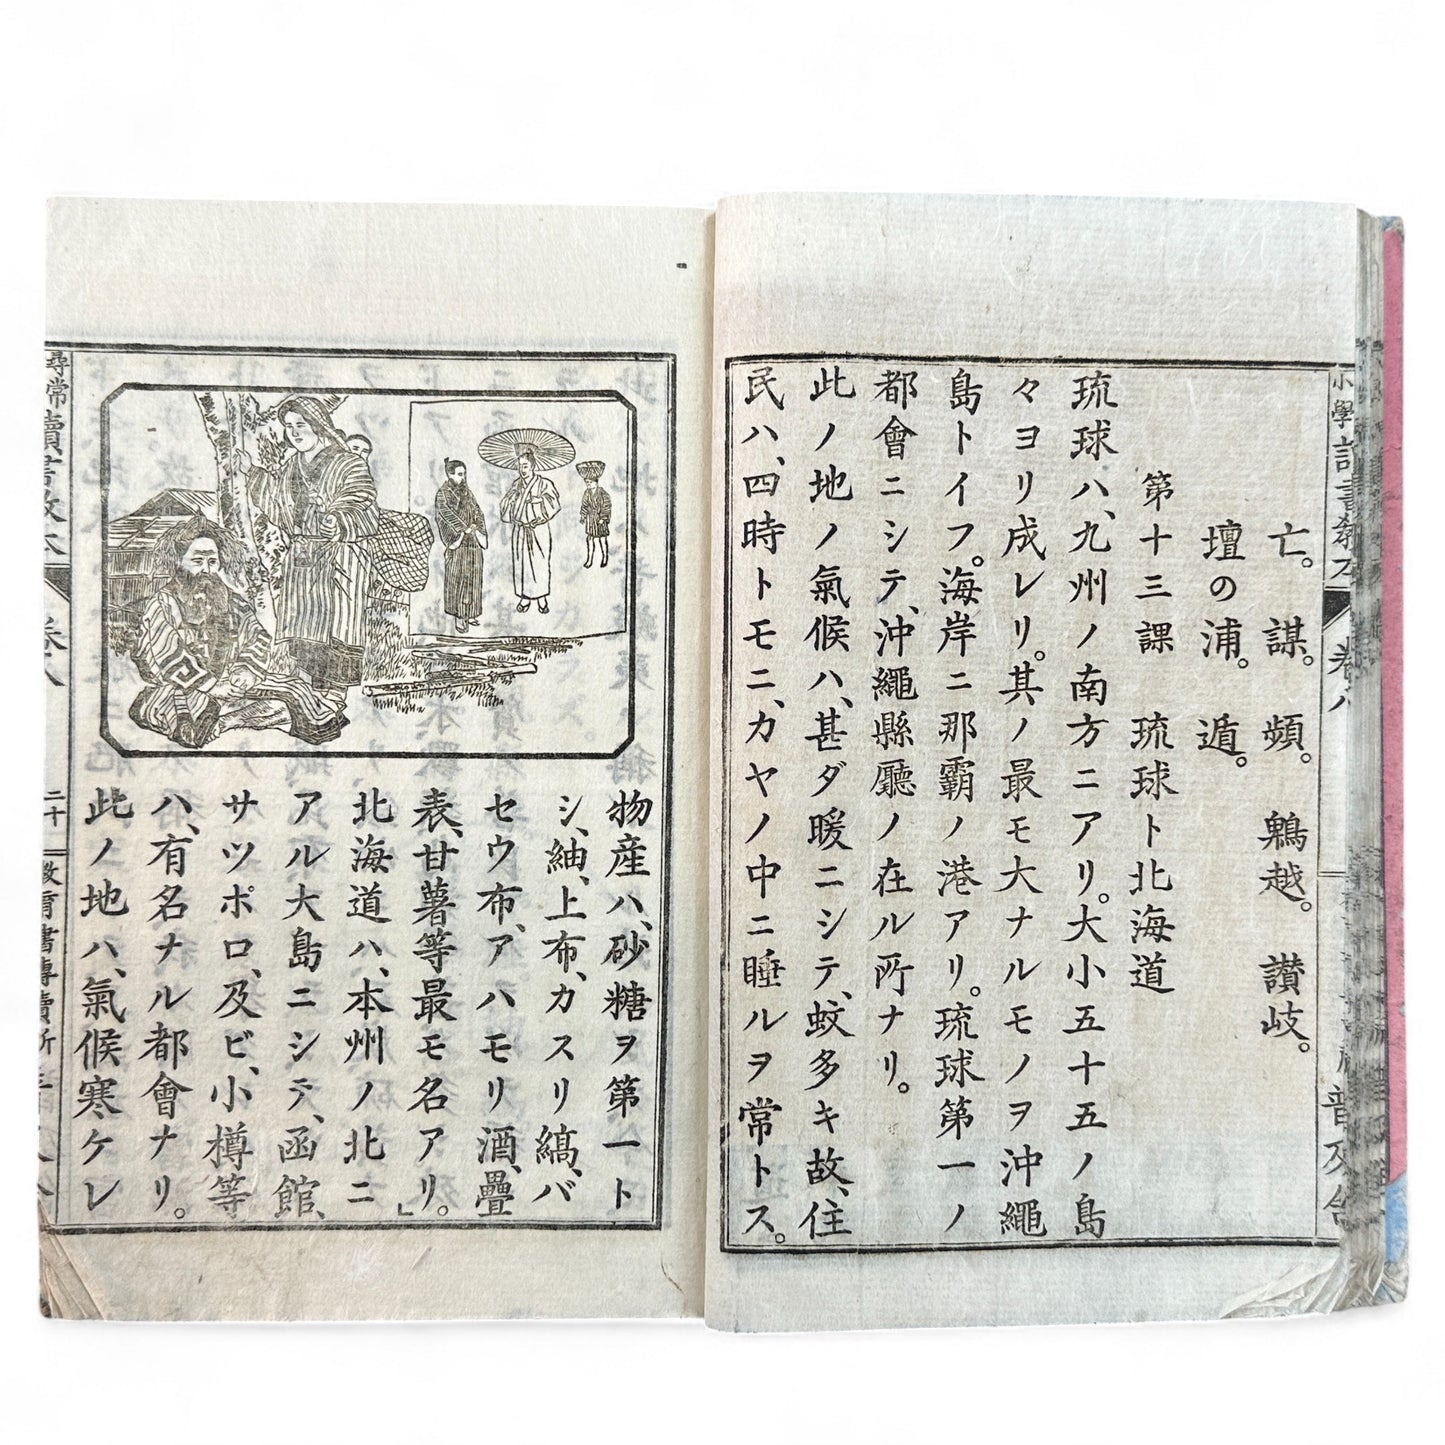 亡。謀。頻。鵯越。讃岐。
壇の浦。遁。
第十三課 琉球ト北海道
琉球ハ、九州ノ南方ニアリ。大小五十五ノ島
々ヨリ成レリ。其ノ最モ大ナルモノヲ沖繩
島トイフ。海岸ニ那霸ノ港アリ。琉球第一ノ
都會ニシテ、沖繩縣廳ノ在ル所ナリ。
此ノ地ノ氣候ハ、甚ダ暖ニシテ、蚊多キ故、住
民ハ、四時トモニ、カヤノ中ニ睡ルヲ常トス。
物産ハ、砂糖ヲ第一ト
シ、紬、上布、カスリ縞、バ
セウ布、アハモリ酒、疊
表、甘薯等最モ名アリ。」
北海道ハ、本州ノ北ニ
アル大島ニシテ、函館、
サツポロ、及ビ、小樽等
ハ、有名ナル都會ナリ。
此ノ地ハ、氣候寒ケレ
尋常讀書敎本 卷八 二十